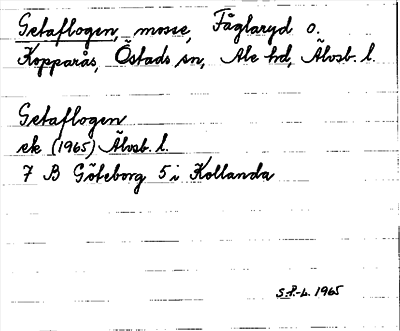 Getaflogen, mosse, Fåglaryd o.
Kopparås, Östads sn, Ale hd, Älvsb. l.
Getaflogen
ek (1965) Älvsb. l.
7 B Göteborg 5 i Kollanda
S.P.-L. 1965